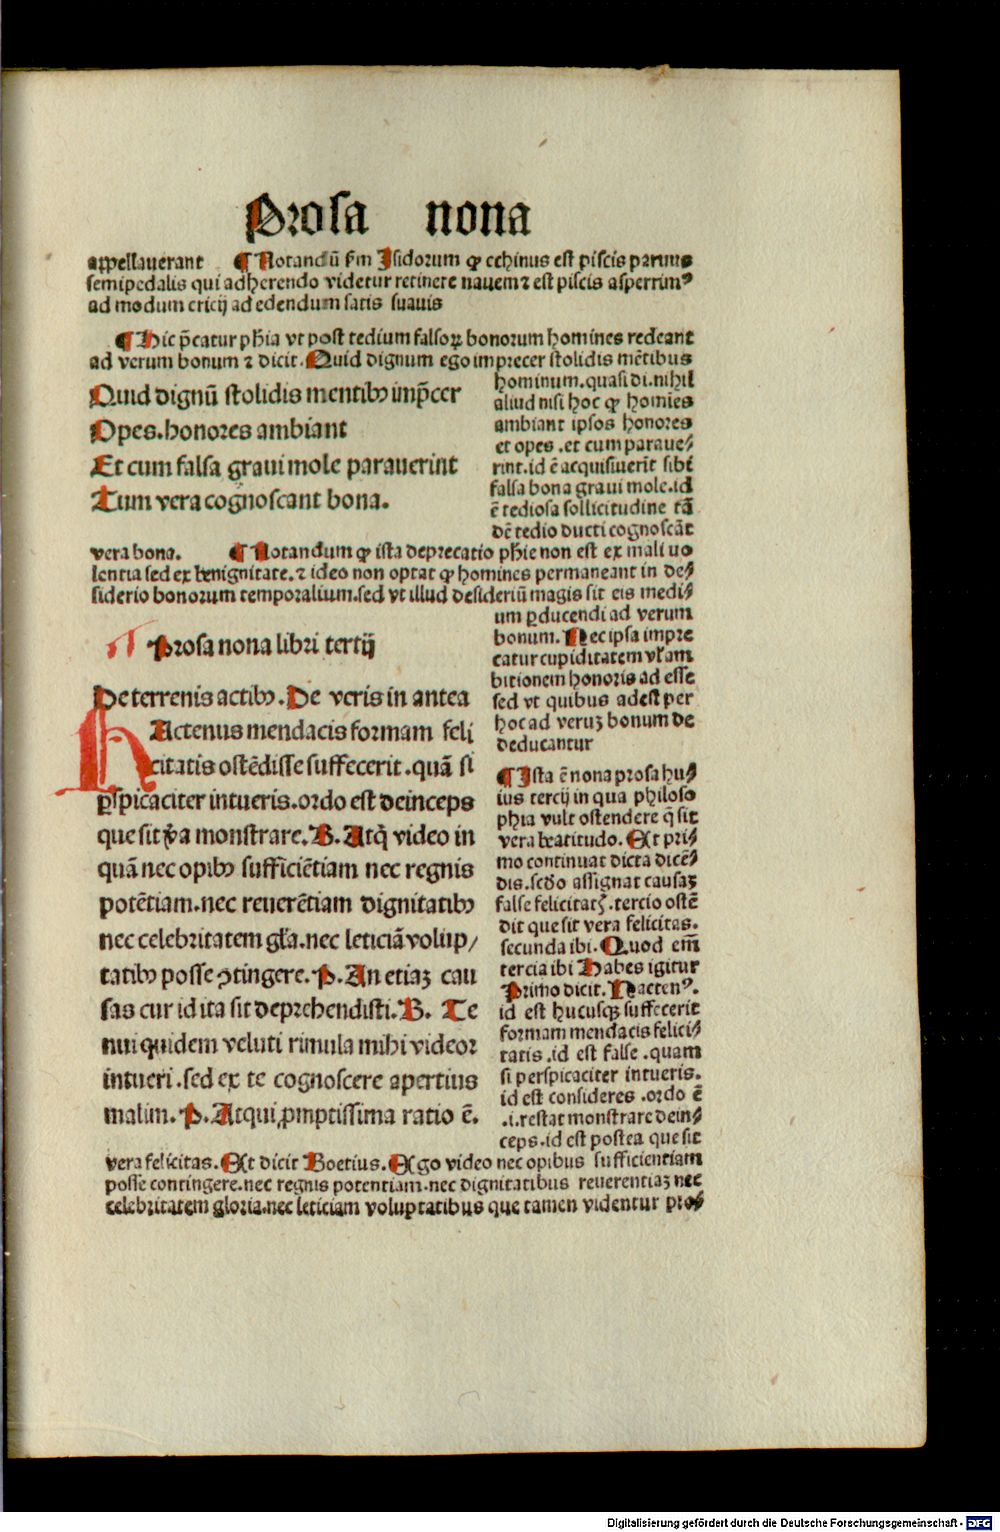 Prosa nona
appellauerant ¶ Notandū ẜm Isidorum ꝙ echinus est piscis paruus
semipedalis qui adherendo videtur retinere nauem ⁊ est piscis asperrimꝰ
ad modum ericij ad edendum satis suauis
¶ Hic p̄catur phīa vt post tedium falsoꝝ bonorum homines redeant
ad verum bonum ⁊ dicit. Quid dignum ego imprecer stolidis mētibus
Quid dignū stolidis mentibꝰ inp̄cer
Opes. honores ambiant
Et cum falsa graui mole parauerint
Tum vera cognoscant bona.
hominum. quasi di. nihil
aliud nisi hoc ꝙ homies
ambiant ipsos honores
et opes .et cum paraue⸗
rint. id ē acquisiuerīt sibi
falsa bona graui mole. id
ē tediosa sollicitudine tā
dē tedio ducti cognoscāt
vera bona. ¶ Notandum ꝙ ista deprecatio phīe non est ex mali uo
lentia sed ex benignitate. ⁊ ideo non optat ꝙ homines permaneant in de⸗
siderio bonorum temporalium. sed vt illud desideriū magis sit eis medi⸗
um ꝑducendi ad verum
bonum. Nec ipsa impre
catur cupiditatem vl̄ am
bitionem honoris ad esse
sed vt quibus adest per
hoc ad veruꝫ bonum de
deducantur
¶ Prosa nona libri tertij
De terrenis actibꝰ. De veris in antea
HActenus mendacis formam feli
citatis ostēdisse suffecerit .quā si
ꝑspicaciter intueris. ordo est deinceps
que sit v̄a monstrare. B. Atq̄ video in
quā nec opibꝰ sufficiētiam nec regnis
potētiam. nec reuerētiam dignitatibꝰ
nec celebritatem gl̄a. nec leticiā volup/
tatibꝰ posse ꝯtingere. P. An etiaꝫ cau
sas cur id ita sit deprehendisti. B. Te
nui quidem veluti rimula mihi videor
intueri .sed ex te cognoscere apertius
malim. P. Atqui ꝓmptissima ratio ē.
¶ Ista ē nona prosa hu⸗
ius tercij in qua philoso
phia vult ostendere q̄ sit
vera beatitudo. Et pri⸗
mo continuat dicta dicē⸗
dis. scd̄o assignat causaꝫ
false felicitatꝭ. tercio ostē
dit que sit vera felicitas.
secunda ibi. Quod em̄
tercia ibi Habes igitur
Primo dicit. Hactenꝰ.
id est hucusqꝫ suffecerit
formam mendacis felici⸗
tatis .id est false .quam
si perspicaciter intueris.
id est consideres .ordo ē
.i. restat monstrare dein⸗
ceps. id est postea que sit
vera felicitas. Et dicit Boetius. Ego video nec opibus sufficientiam
posse contingere. nec regnis potentiam. nec dignitatibus reuerentiaꝫ nec
celebritatem gloria. nec leticiam voluptatibus que tamen videntur pro⸗
Digitalisierung gefördert durch die Deutsche Forschungsgemeinschaft - DFG